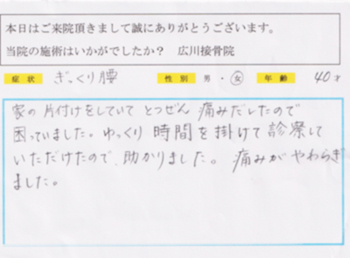 本日はご来院頂きまして誠にありがとうございます。
当院の施術はいかがでしたか？ 広川接骨院
症状 ぎっくり腰 性別 男・女 年齢 40才
家の片付けをしていて とつぜん 痛みだしたので
困っていました。ゆっくり 時間を掛けて 診察して
いただけたので、助かりました。 痛みが やわらぎ
ました。